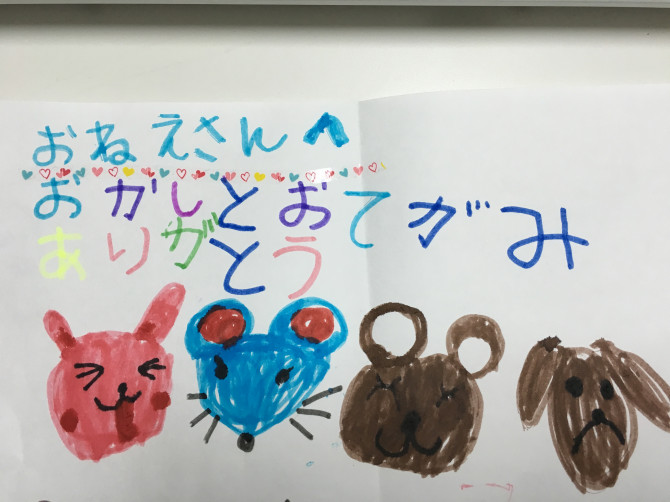 おねえさんへ
おかしとおてがみ
ありがとう